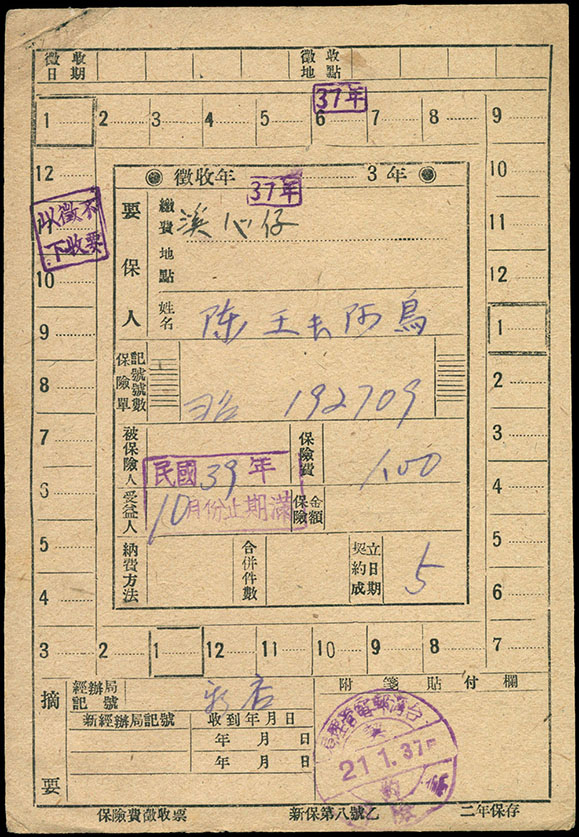 徵收日期
徵收地點
37年
1 2 3 4 5 6 7 8 9
12 10
以下徵收不要票
10 12
9 1
8 2
7 3
6 4
5 5
4 6
3 2 1 12 11 10 9 8 7
徵收年 3年
37年
要保人
繳費地點 溪心仔
姓名 陈王 阿烏
保險單記號號數 192709
被保險人
保險費 1.00
受益人
保險金額
民國39年
10月份止期滿
納費方法
合併件數
契約成立日期 5
摘要
經辦局記號
新店
新經辦局記號 收到年月日
年 月 日
年 月 日
附箋貼付欄
21.1.37
保險費徵收票 新保第八號乙 二年保存